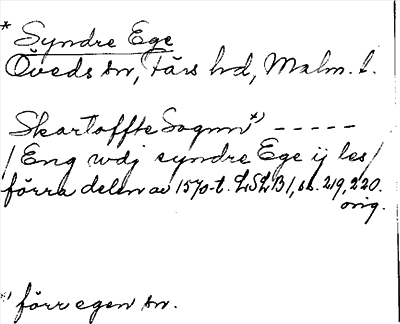 * Syndre Ege
Öveds sn, Färs hd, Malm. l.
Skartoffte Sognn *) - - - - -
/ Eng wdj syndre Ege ij les /
förra delen av 1570-t. LSLB1, ss. 219, 220.
orig.
*) förr egen sn.